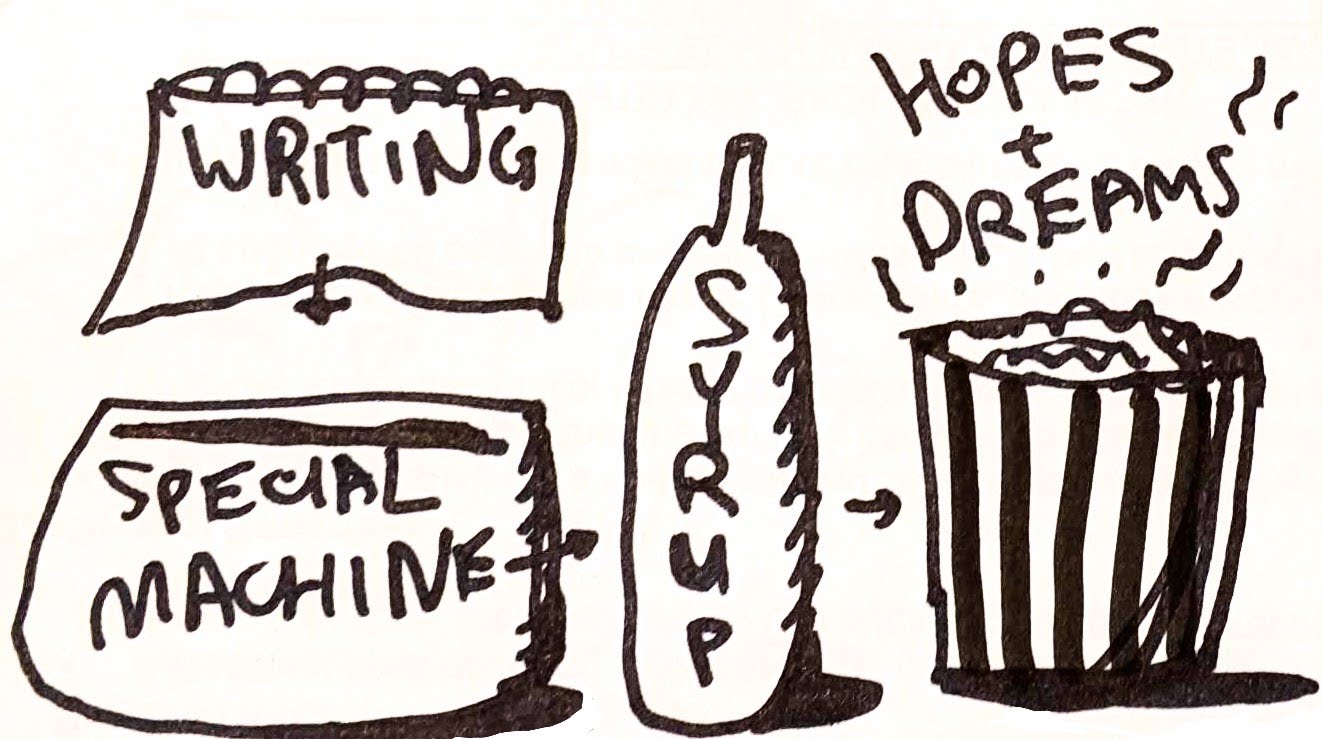 WRITING
SPECIAL
MACHINE
SYRUP
HOPES
+
DREAMS